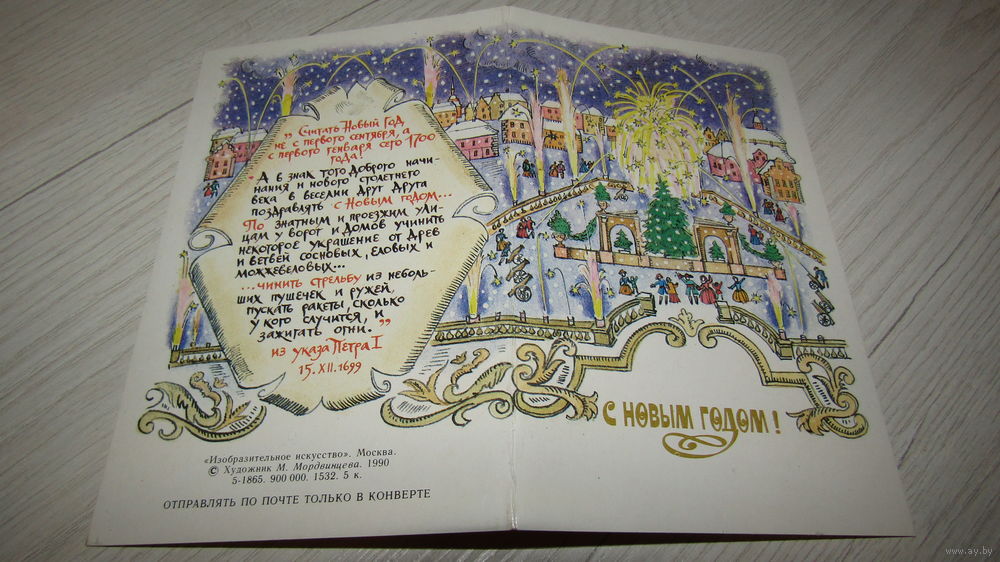 „ Считать Новый Год
не с первого сентября, а
с первого генваря сего 1700
года!
"А в знак того доброго начи-
нания и нового столетнего
века в веселии друг друга
поздравлять с Новым годом...
По знатным и проезжим ули-
цам у ворот и домов учинить
некоторое украшение от древ
и ветвей сосновых, еловых и
можжевеловых...
...чинить стрельбу из неболь-
ших пушечек и ружей,
пускать ракеты, сколько
у кого случится, и
зажигать огни."
из указа Петра I
15.XII.1699
С НОВЫМ ГОДОМ!
«Изобразительное искусство». Москва.
© Художник М. Мордвинцева. 1990
5-1865. 900 000. 1532. 5 к.
ОТПРАВЛЯТЬ ПО ПОЧТЕ ТОЛЬКО В КОНВЕРТЕ
www.ay.by